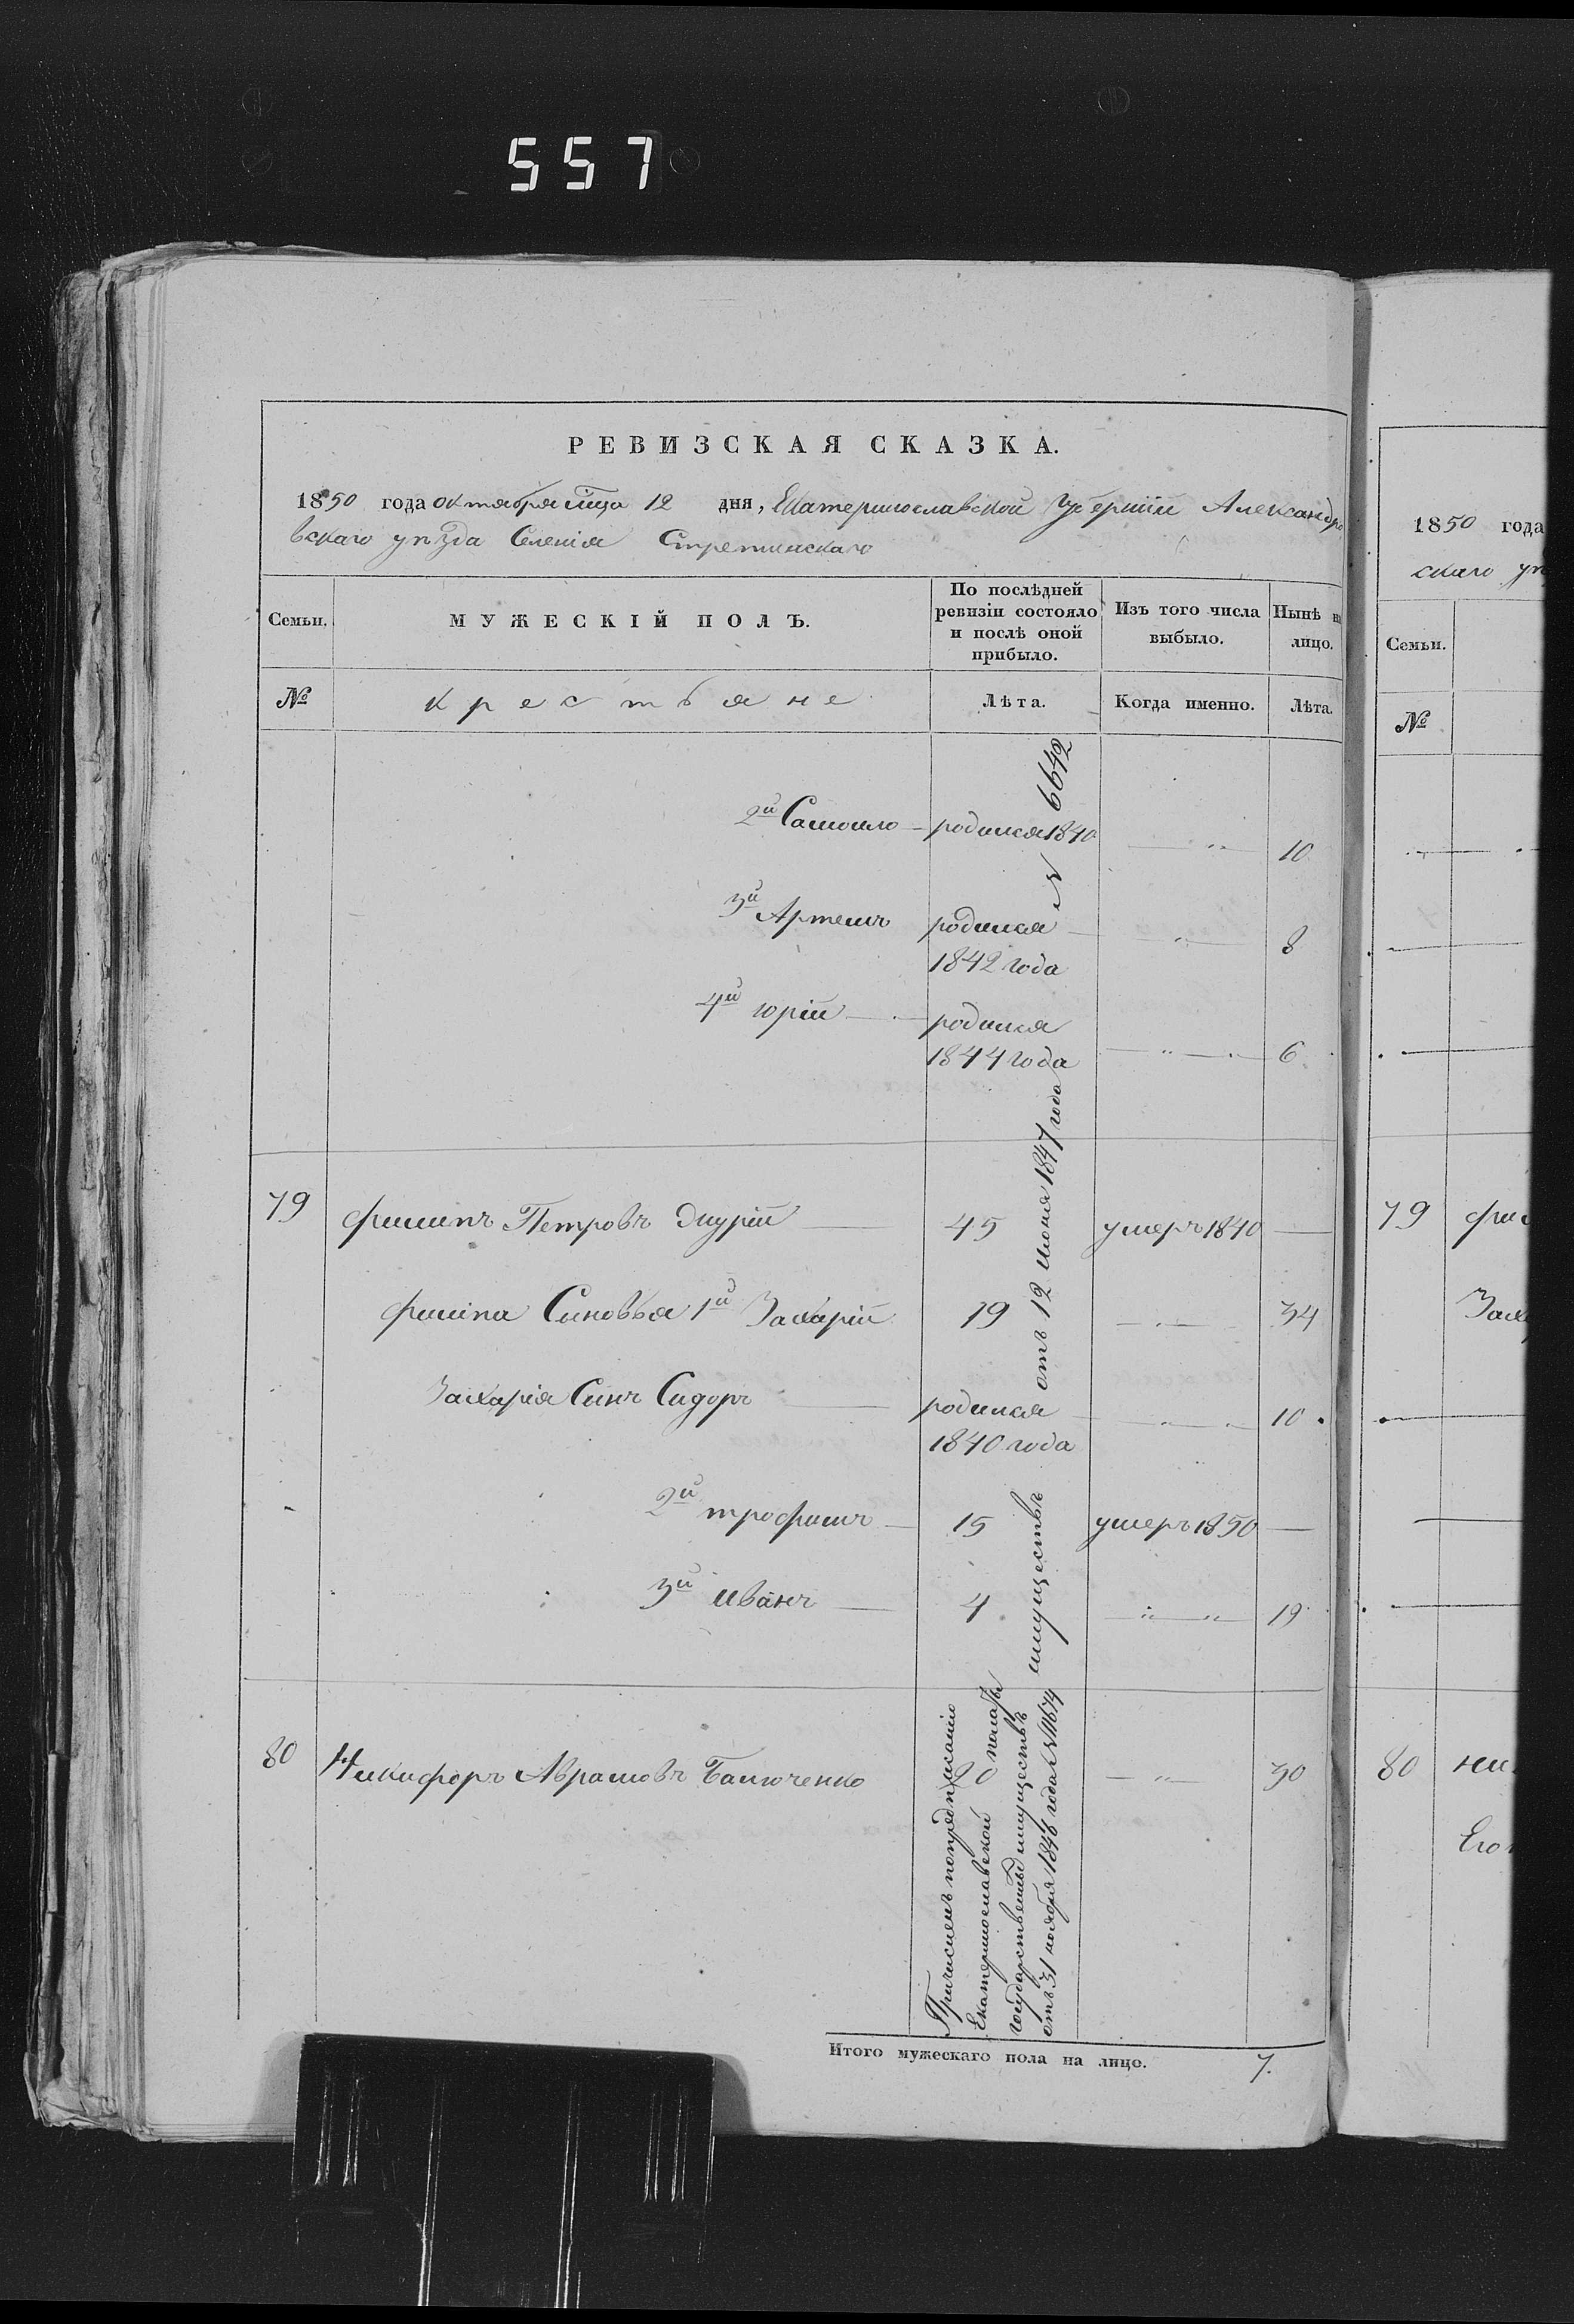 557
РЕВИЗСКАЯ СКАЗКА.
1850 года октября мца 12 дня, Екатеринославской Губерніи Александро
вскаго уѣзда Селенія Стретинскаго
Семьи.
МУЖЕСКІЙ ПОЛЪ.
По послѣдней ревизіи состояло и послѣ оной прибыло.
Изъ того числа выбыло.
Нынѣ на лицо.
№
крестьяне
Лѣта.
Когда именно.
Лѣта.
2й Самоило родился 1840 10
3й Артемъ родился 1842 года 8
4й юрій родился 1844 года 6
79 филипъ Петровъ 45 умеръ 1840
филипа Синовья 1й Захарій 19 34
Захарія Синъ Сидоръ родился 1840 года 10
2й трофимъ 15 умеръ 1850
3й иванъ 4 19
80 Никифоръ Аврамовъ 20 30
Причисленъ по предписанію
Екатеринославской палаты
государственныхъ имуществъ
отъ 31 ноября 1846 года № 11674
имуществъ отъ 12 июня 1847 года № 6642
Итого мужескаго пола на лицо. 7.
1850 года
скаго уѣ
Семьи.
№
79 фил
Заха
80 ник
Его